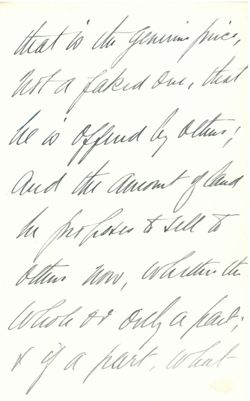 that is the genuine price,
not a faked one, that
he is offered by others;
and the amount of land
he proposes to sell to
others now, whether the
whole or only a part;
& if a part, what